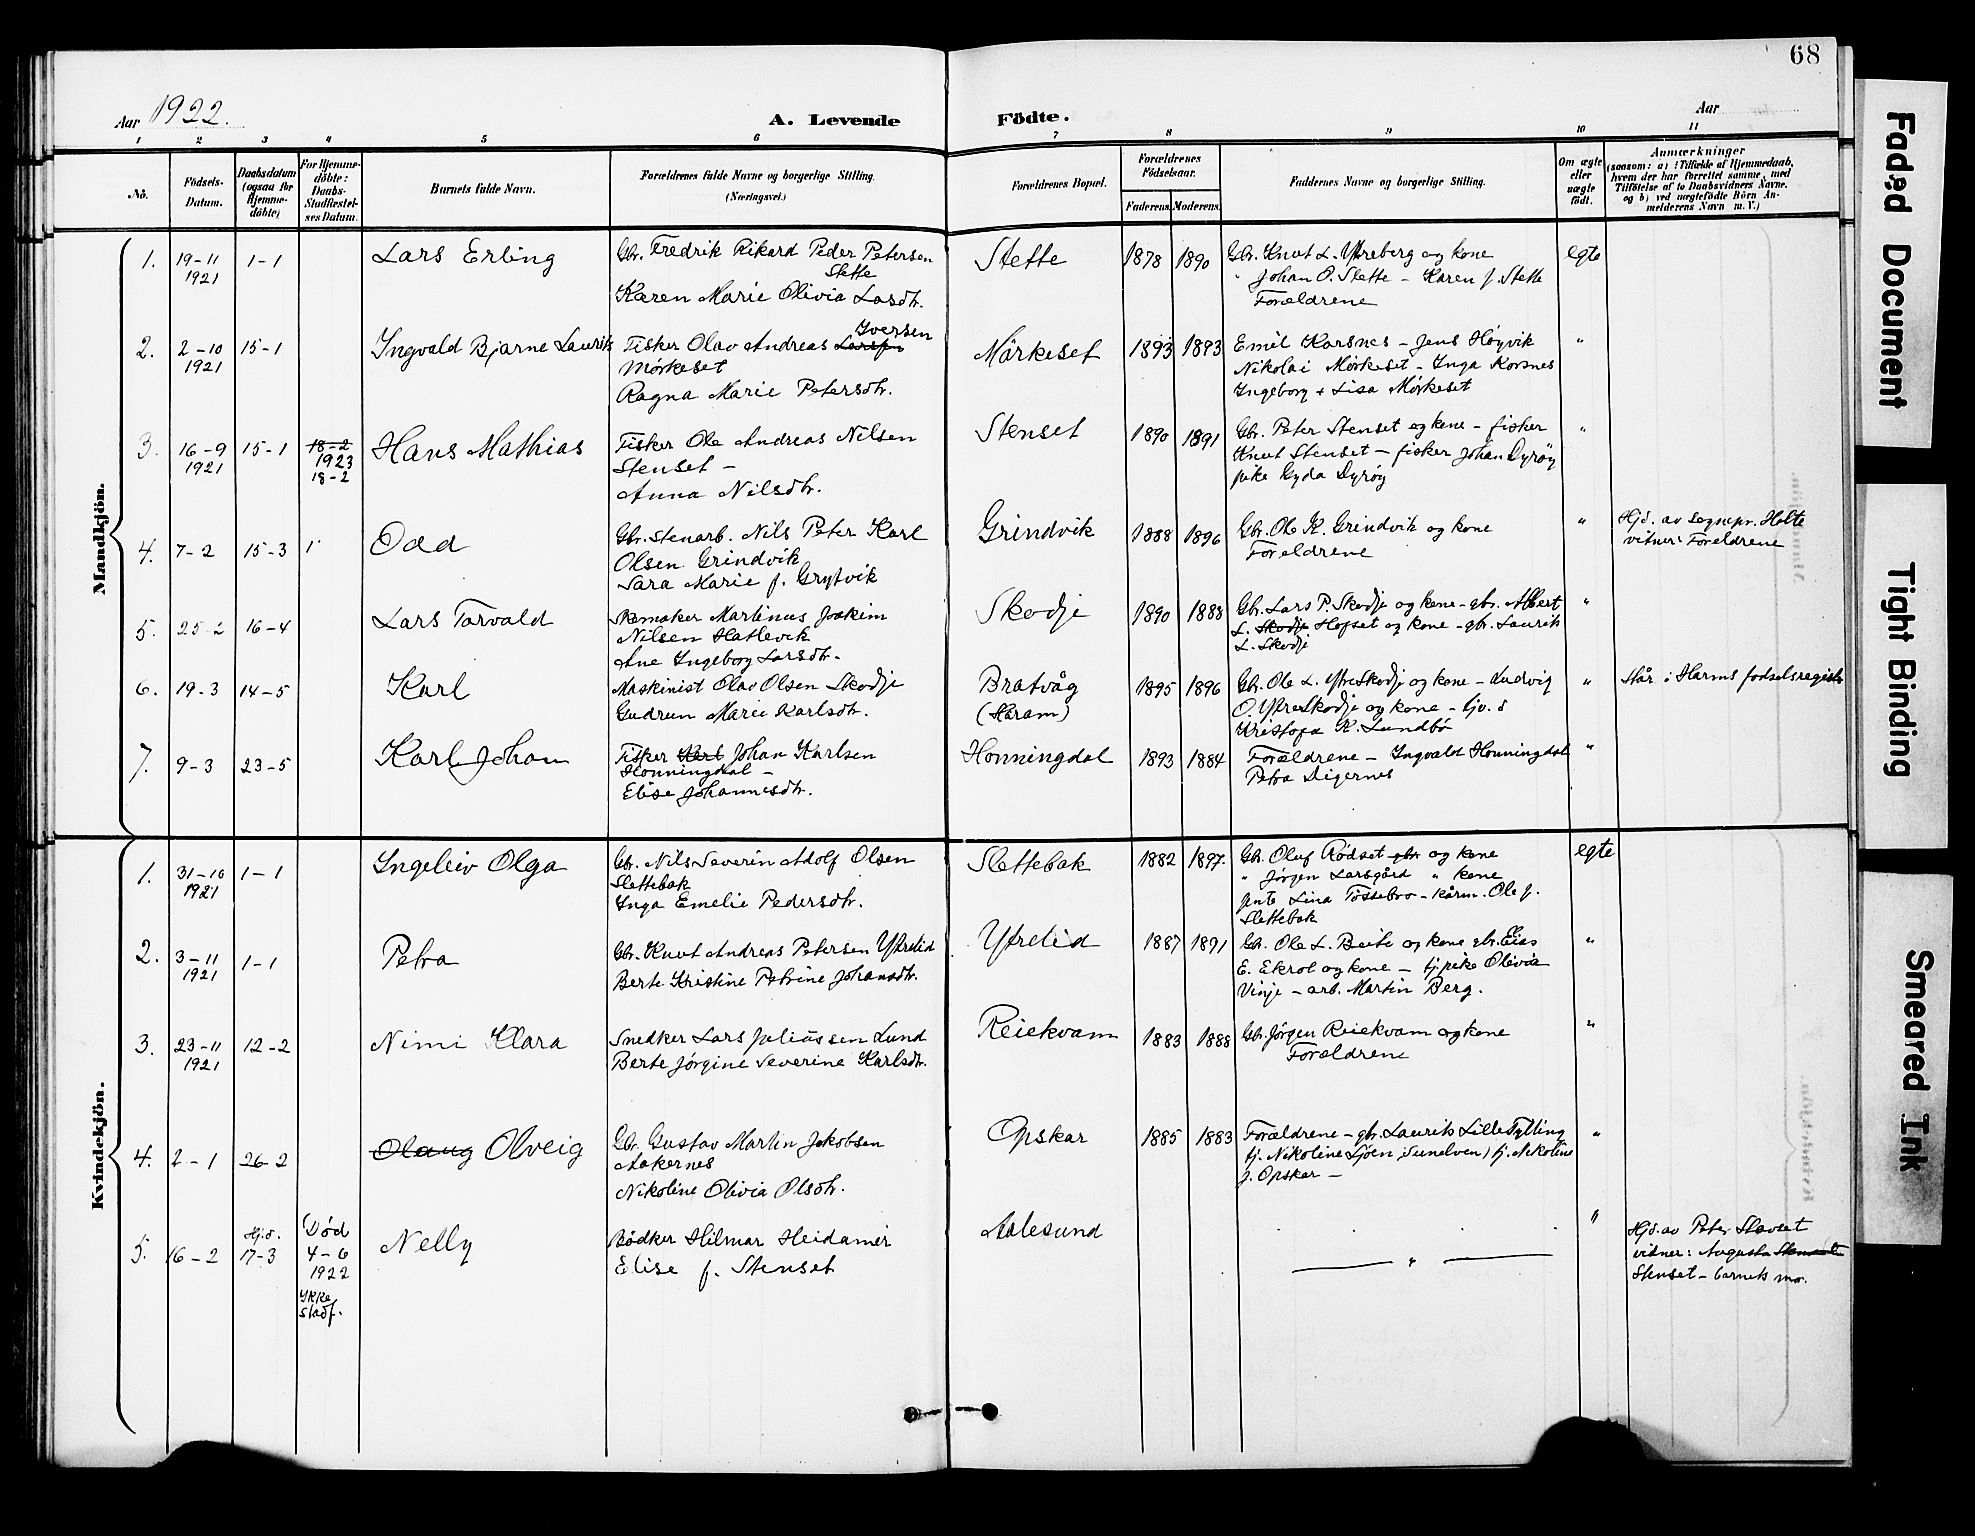 68
Aar 1922.
A. Levende Födte.
Aar
1 2 3 4 5 6 7 8 9 10 11
No.
Födsels-Datum.
Daabsdatum (ogsaa for Hjemme-döbte)
For Hjemme-döbte: Daabs-Stadfæstel-ses Datum.
Barnets fulde Navn.
Forældrenes fulde Navne og borgerlige Stilling. (Næringsvei.)
Forældrenes Bopæl.
Forældrenes Födselsaar.
Faderens. Moderens.
Faddernes Navne og borgerlige Stilling.
Om ægte eller uægte födt.
Anmærkninger
(saasom: a) i Tilfælde af Hjemmedaab,
hvem der har forrettet samme, med
Tilföielse af to Daabsvidners Navne,
og b) ved uægtefödte Börn An-
melderens Navn m. V.)
Mandkjön.
1. 19-11 1921 1-1 Lars Erling
Gbr. Fredrik Rikard Peder Petersen
Stette
Karen Marie Olivia Lasdtr.
Stette 1878 1890
Gbr. Knut L. Ytreberg og kone
" Johan P. Stette - Karen f. Stette
Forældrene
egte
2. 2-10 1921 15-1 Ingvald Bjarne Laurits
Iversen
Fisker Olav Andreas
Mørkeset
Ragna Marie Petersdtr.
Mörkeset 1893 1893
Emil Korsnes - Jens Høyvik
Nikolai Mørkeset - Inga Korsnes
Ingeborg + Lisa Mørkeset
"
3. 16-9 1921 15-1 18-2 1923 18-2 Hans Mathias
Fisker Ole Andreas Nilsen
Stenset -
Anna Nilsdtr.
Stenset 1890 1891
Gbr. Peter Stenset og kone - fisker
Knut Stenset - fisker Johan Dyrøy
pike Gyda Dyrøy
"
4. 7-2 15-3 Odd
Gbr. Stenarb. Nils Peter Karl
Olsen Grindvik
Sara Marie f. Grytvik
Grindvik 1888 1896
Gbr. Ole K. Grindvik og kone
Foreldrene
"
Hjd. av sognepr. Holte
vitner: Foreldrene
5. 25-2 16-4 Lars Torvald
Skomaker Martinus Joakim
Nilsen Hatlevik
Ane Ingeborg Larsdtr.
Skodje 1890 1888
Gbr. Lars P. Skodje og kone - gbr. Albert
L. Skodje Hofset og kone - gbr. Laurits
L. Skodje
"
6. 19-3 14-5 Karl
Maskinist Olav Olsen Skodje
Gudrun Marie Karlsdtr.
Bratvåg
(Haram) 1895 1896
Gbr. Ole L. Ytreskodje og kone - Ludvig
O. Ytreskodje og kone -
Kristofa K. Lundbø
"
Står i Harams fødselsregister
7. 9-3 23-5 Karl Johan
Fisker Karl Johan Karlsen
Honningdal -
Elise Johannesdtr.
Honningdal 1893 1884
Forældrene - Ingvald Honningdal
Petra Digernes
"
Kvindekjön.
1. 31-10 1921 1-1 Ingeleiv Olga
Gbr. Nils Severin Adolf Olsen
Slettebak
Inga Emelie Pedersdtr.
Slettebak 1882 1897
Gbr. Oluf Rødset gbr og kone
" Jørgen Larsgård " kone
jente Lina Tossebro - Ole J.
Slettebak
egte
2. 3-11 1921 1-1 Petra
Gbr. Knut Andreas Petersen Ytrelid
Berte Kristine Petrine Johansdtr.
Ytrelid 1887 1891
Gbr. Ole L. Beite og kone gbr. Elias
E. Ekrol og kone - tj.pike Olivia
Vinje - arb. Martin Berg.
"
3. 23-11 1921 12-2 Nimi Klara
Snedker Lars Juliussen Lund
Berte Jørgine Severine Karlsdtr.
Reiekvam 1883 1888
Gbr. Jørgen Reiekvam og kone
Forældrene
"
4. 2-1 26-2 Olaug Olveig
Gbr. Gustav Martin Jakobsen
Aakernes
Nikoline Olivia Olsdtr.
Opskar 1885 1883
Forældrene - gbr. Laurits LilleTylling
tj. Nikoline Ljøen, Sunelven) tj. Nikoline
J. Opskar -
"
5. 16-2 Hjd. 17-3 Død 4-6 1922 Ikke stadf. Nelly
Bødker Hilmar Heidamer
Elise f. Stenset
Aalesund
"
"
Hjd. av Peter Slavset
vidner: Augusta
Stenset - barnets mor.
Faded Document
Tight Binding
Smeared Ink